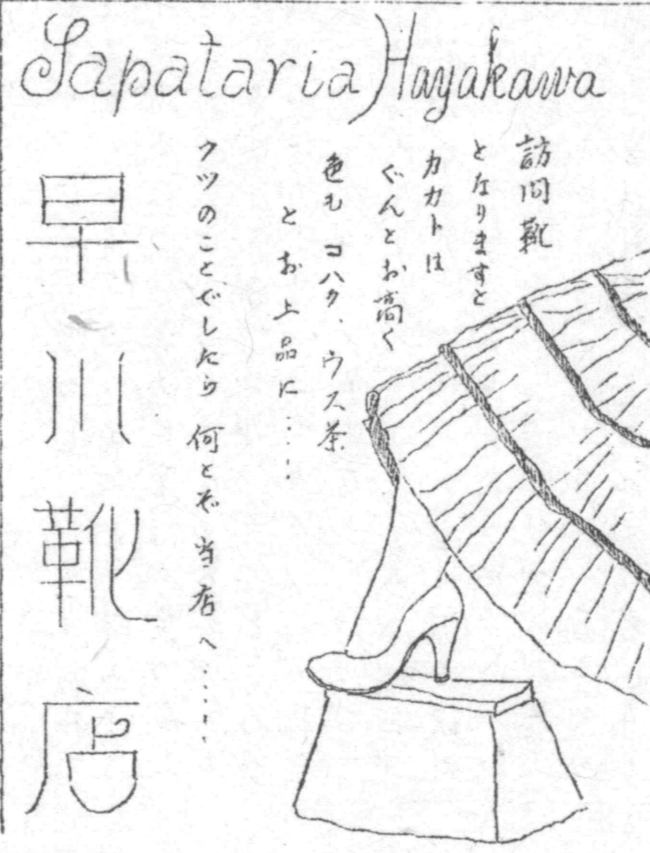 Sapataria Hayakawa
訪問靴
となりますと
カカトは
ぐんとお高く
色も コハク、ウス茶
とお上品に……
クツのことでしたら 何とぞ 当店へ……
早川靴店